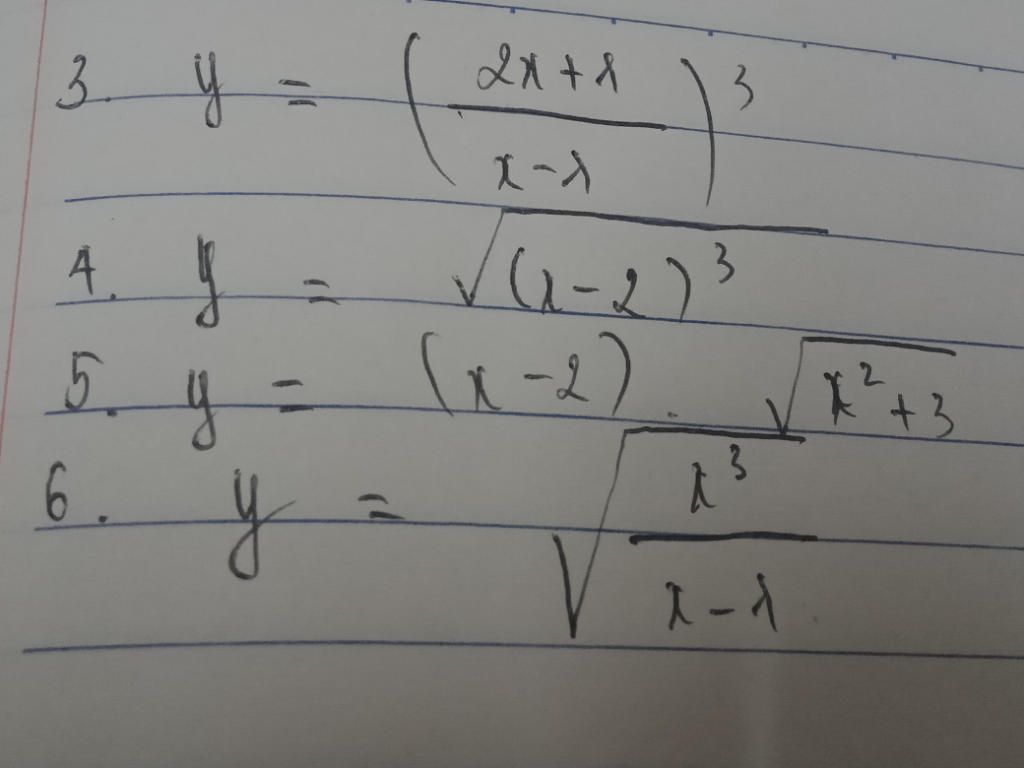 3. y = ((2x+1)/(x-1))^3
4. y = √((x-2)^3)
5. y = (x-2) . √(x^2+3)
6. y = √(x^3/(x-1))